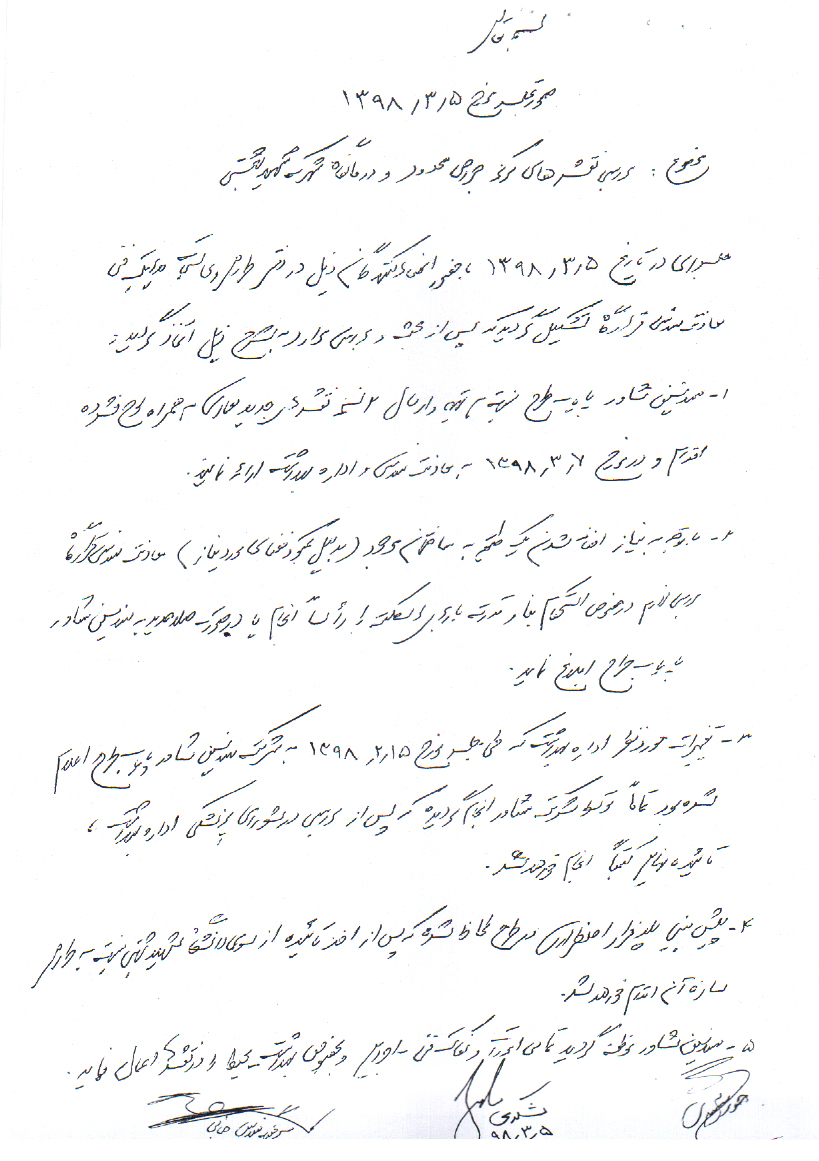 بسمه تعالی
صورتجلسه مورخ ۱۳۹۸/۳/۵
موضوع : بررسی نقشه های مرکز جراحی محدود و درمانگاه شهرک شهید
جلسه‌ای در تاریخ ۱۳۹۸/۳/۵ با حضور امضاءکنندگان ذیل در دفتر طراحی
معاونت مهندسی قرارگاه تشکیل گردید که پس از بحث و بررسی موارد به شرح ذیل اتخاذ گردید:
۱- مهندسین مشاور پایه طرح نسبت به تهیه و ارسال ۲ نسخه نقشه های جدید معماری به همراه لوح فشرده
اقدام و در مورخ ۱۳۹۸/۳/۷ به معاونت مهندسی و اداره بهداشت ارائه نمایند.
۲- با توجه به نیاز اضافه شدن یک طبقه به ساختمان موجود (بدلیل کمبود فضای مورد نیاز) معاونت مهندسی قرارگاه
بررسی لازم در خصوص استحکام بنا و قدرت باربری اسکلت را رأساً انجام یا در صورت صلاحدید به مهندسین مشاور
طراح ابلاغ نماید.
۳- تغییرات مورد نظر اداره بهداشت که طی جلسه مورخ ۱۳۹۸/۲/۱۵ به شرکت مهندسین مشاور طراح اعلام
شده بود تماماً توسط شرکت مشاور انجام گردیده که پس از بررسی در شورای پزشکی اداره بهداشت،
تائیدیه نهایی کتباً اعلام خواهد شد.
۴- پیش بینی پله فرار اضطراری در طرح لحاظ شده که پس از اخذ تائیدیه از سوی شهید نسبت به طراحی
سازه آن اقدام خواهد شد.
۵- مهندسین مشاور موظف گردید تمامی و نکات فنی اجرایی و بخصوص بهداشت محیط را در نقشه ها اعمال نماید.
۹۸/۳/۵